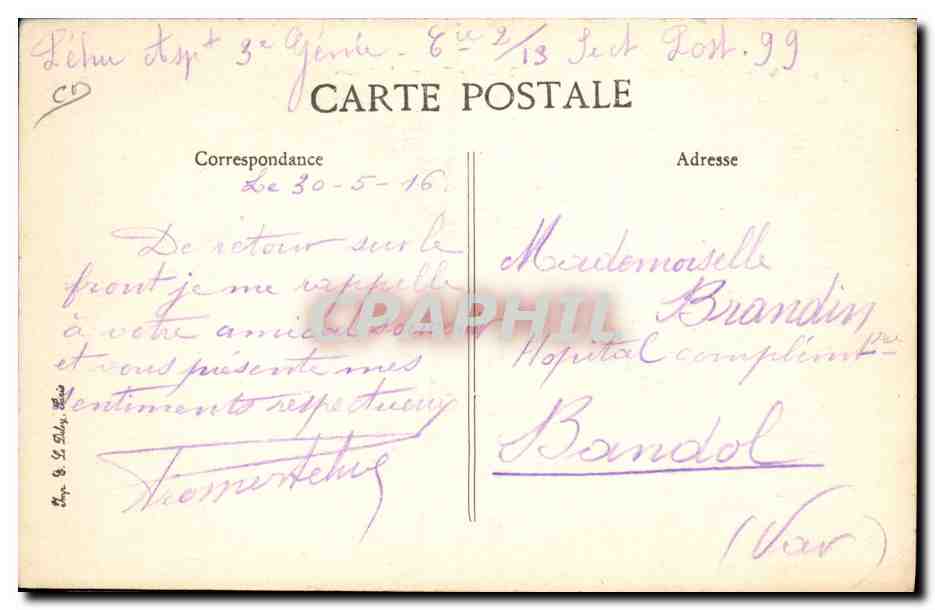 Léhu Aspt 3e Génie - Cie 2/13 Sect Post. 99
CARTE POSTALE
Correspondance
Le 30-5-16.
De retour sur le
front je me rappelle
à votre amical
et vous présente mes
sentiments respectueux
Adresse
Mademoiselle
Brandin
Hopital complémtre
Bandol
(Var)
Imp. E. Le Deley, Paris
CPAPHIL